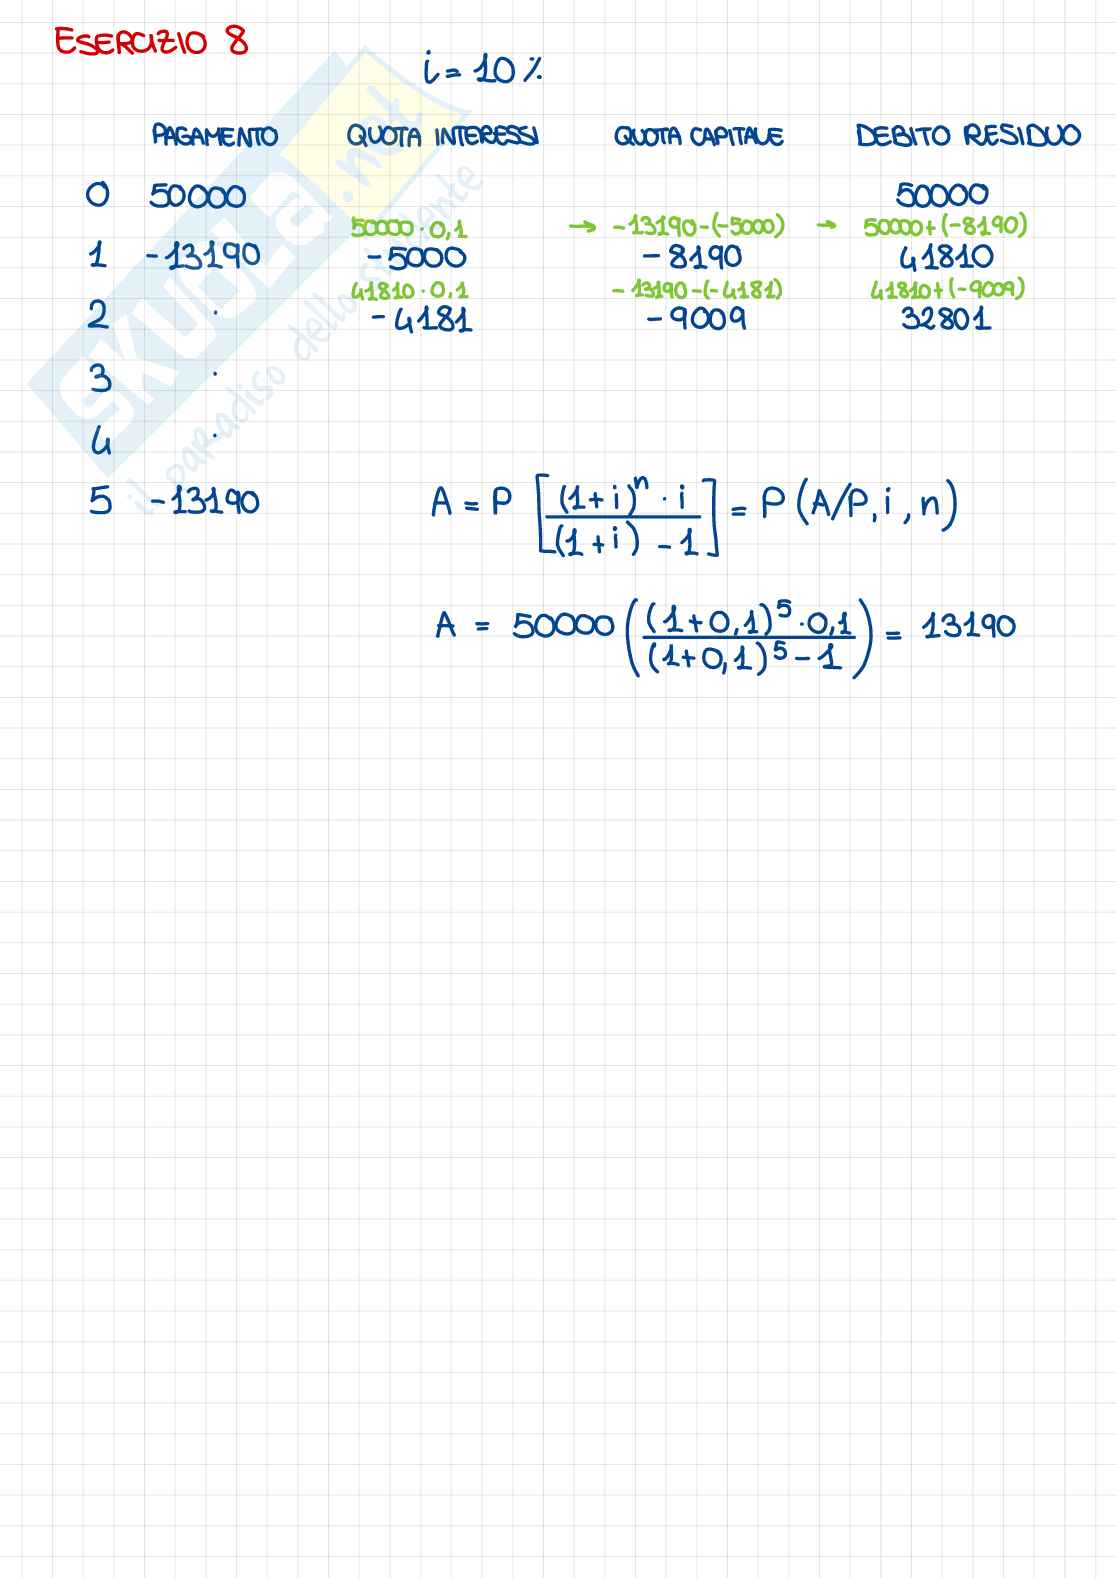 ESERCIZIO 8
i = 10 %
PAGAMENTO QUOTA INTERESSI QUOTA CAPITALE DEBITO RESIDUO
0 50000 50000
50000 · 0,1 → -13190-(-5000) → 50000+(-8190)
1 -13190 -5000 -8190 41810
41810 · 0,1 -13190-(-4181) 41810+(-9009)
2 · -4181 -9009 32801
3 ·
4 ·
5 -13190
A = P [ (1+i)^n · i / (1+i) - 1 ] = P (A/P, i, n)
A = 50000 ( (1+0,1)^5 · 0,1 / (1+0,1)^5 - 1 ) = 13190
SKUOLA.net
il paradiso dello studente